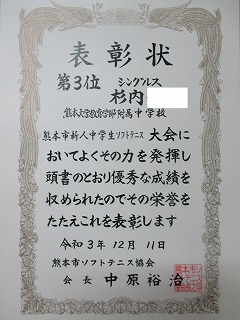 表彰状
第3位 シングルス
杉内
熊本大学教育学部附属中学校
熊本市新人中学生ソフトテニス大会に
おいてよくその力を発揮し
頭書のとおり優秀な成績を
収められたのでその栄誉を
たたえこれを表彰します
令和3年12月11日
熊本市ソフトテニス協会
会長 中原裕治